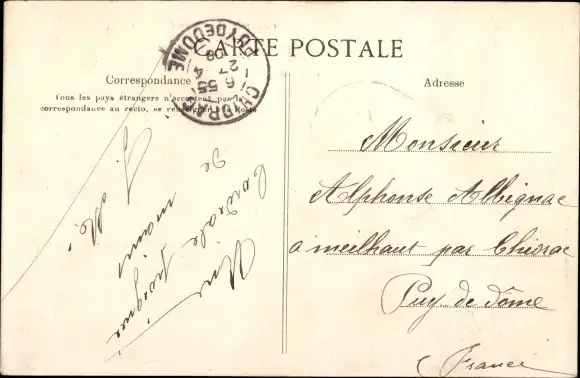 CARTE POSTALE
Correspondance
Tous les pays étrangers n'acceptent pas la
correspondance au recto, se renseigner à la Poste
Adresse
CHIDRAC
PUY-DE-DOME
6 55
27 4
08
Monsieur
Alphonse Albignac
a meilhaut par Chidrac
Puy-de-dôme
France
Une
Cordiale poignée
de mains